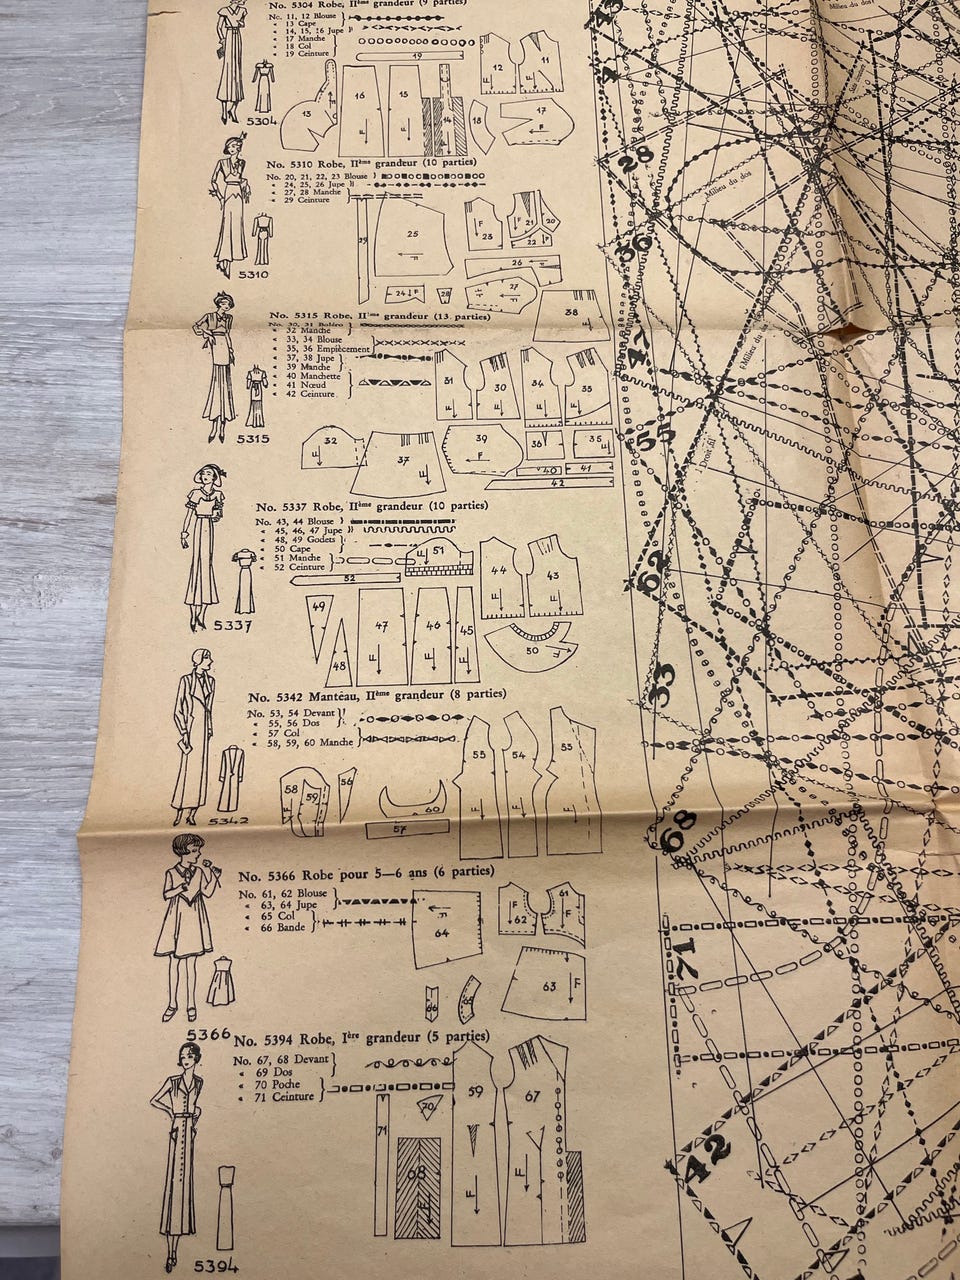 No. 5304 Robe, IIème grandeur (9 parties)
No. 11, 12 Blouse
« 13 Cape
« 14, 15, 16 Jupe
« 17 Manche
« 18 Col
« 19 Ceinture
19
12
11
13
16
15
14
18
17
F
5304
No. 5310 Robe, IIème grandeur (10 parties)
No. 20, 21, 22, 23 Blouse
« 24, 25, 26 Jupe
« 27, 28 Manche
« 29 Ceinture
29
25
23
21
20
22
26
24
28
27
38
5310
No. 5315 Robe, IIème grandeur (13 parties)
No. 30, 31 Boléro
« 32 Manche
« 33, 34 Blouse
« 35, 36 Empiècement
« 37, 38 Jupe
« 39 Manche
« 40 Manchette
« 41 Nœud
« 42 Ceinture
31
30
34
33
32
37
39
36
35
40
41
42
5315
No. 5337 Robe, IIème grandeur (10 parties)
No. 43, 44 Blouse
« 45, 46, 47 Jupe
« 48, 49 Godets
« 50 Cape
« 51 Manche
« 52 Ceinture
51
52
44
43
49
48
47
46
45
50
5337
No. 5342 Manteau, IIème grandeur (8 parties)
No. 53, 54 Devant
« 55, 56 Dos
« 57 Col
« 58, 59, 60 Manche
58
59
56
60
57
55
54
53
5342
No. 5366 Robe pour 5—6 ans (6 parties)
No. 61, 62 Blouse
« 63, 64 Jupe
« 65 Col
« 66 Bande
64
62
61
63
66
65
5366
No. 5394 Robe, Ière grandeur (5 parties)
No. 67, 68 Devant
« 69 Dos
« 70 Poche
« 71 Ceinture
71
70
68
59
67
5394
Milieu du dos
28
Milieu du dos
36
47
Milieu du dos
55
Droit fil
62
33
68
71
42